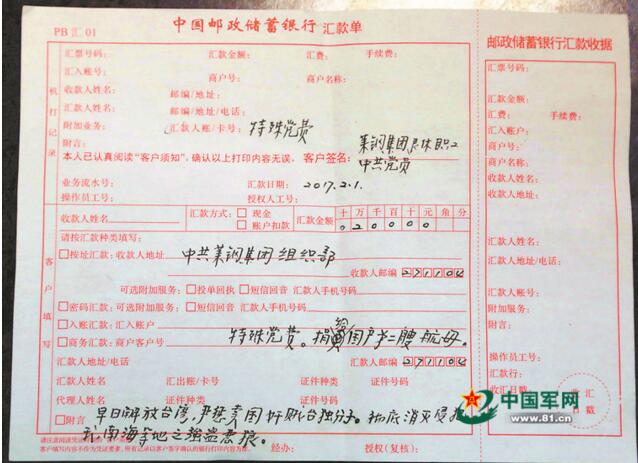 PB汇01
中国邮政储蓄银行 汇款单
汇票号码: 汇款金额: 汇费: 手续费:
汇入账号: 商户号: 商户名称:
收款人姓名: 邮编/地址:
汇款人姓名: 邮编/地址/电话:
附加业务: 汇款人账/卡号: 特殊党费
附言: 莱钢集团退休职工
本人已认真阅读“客户须知”,确认以上打印内容无误。 客户签名: 中共党员
业务流水号: 汇款日期: 2017.2.1.
操作员工号: 授权人工号:
机打记录
收款人姓名 汇款方式: 现金 账户扣款 汇款金额 十万千百十元角分
020000
请按汇款种类填写:
按址汇款: 收款人地址 中共莱钢集团组织部
收款人邮编 271104
可选附加服务: 投单回执 短信回音 汇款人手机号码
密码汇款: 可选附加服务: 短信回音 汇款人手机号码
入账汇款: 汇入账户
商务汇款: 商户客户号 特殊党费。捐给国产第二艘航母。
汇款人地址/电话 汇款人邮编 271104
汇款人姓名 汇出账/卡号 证件种类 证件号码
代理人姓名 证件种类 证件号码
附言 早日解放台湾,严惩美国奸贼台独分子。彻底消灭侵占
我南海等地之强盗恶狼。
客户填写
经办: 授权(复核):
邮政储蓄银行汇款收据
汇票号码:
汇款金额:
汇费: 手续费:
汇入账户:
商户号:
商户名称:
收款人姓名:
收款人地址:
汇款人姓名:
汇款人地址/电话:
汇款人账号:
附加业务:
附言:
操作员工号:
汇款行:
收汇日期:
收汇
日戳
中国军网
www.81.cn